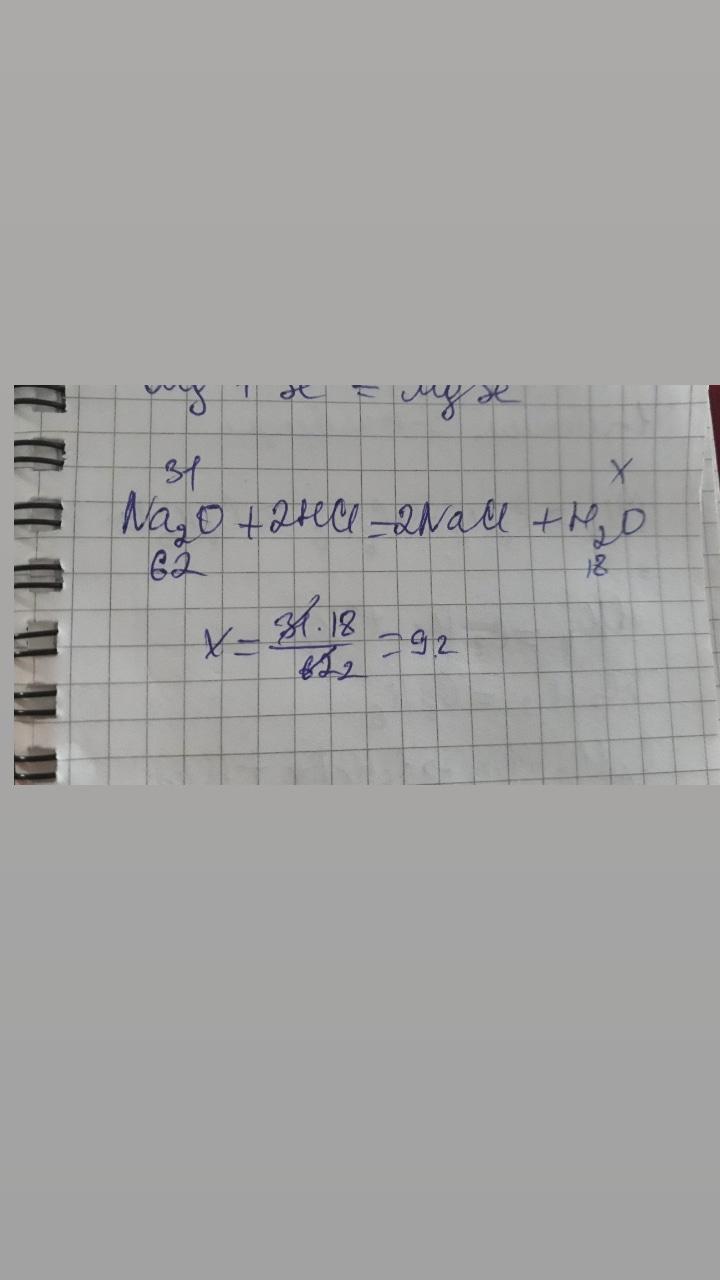 31 X
Na₂O + 2HCl = 2NaCl + H₂O
62 18
X = 31 · 18 / 62 2 = 9 г